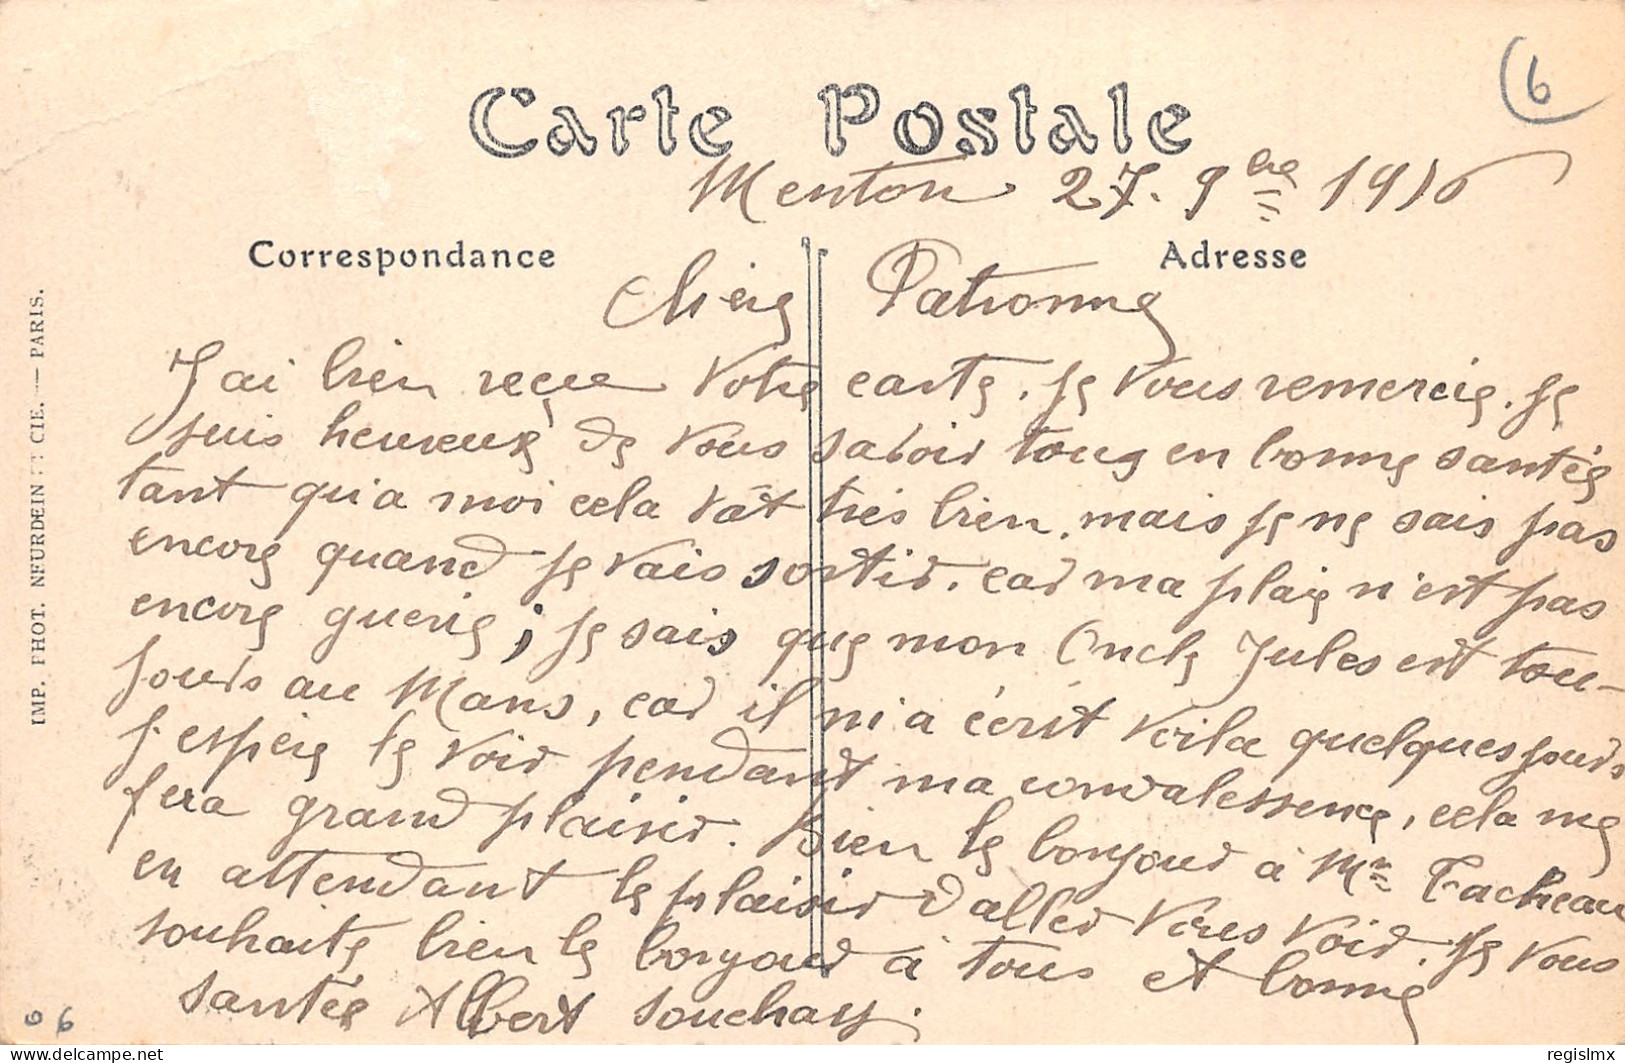 6
Carte Postale
Menton 27. 9bre 1916
Correspondance
Adresse
Chère Patronne
J'ai bien reçue votre carte. je vous remercie. je
suis heureuse de vous savoir tous en bonne santée
tant qu'a moi cela vât très bien, mais je ne sais pas
encore quand je vais sortir. car ma plaie n'est pas
encore guerie; je sais que mon Oncle Jules est tou-
jours au Mans, car il m'a écrit voila quelques jours
j'espère le voir pendant ma convalessence, cela me
fera grand plaisir. Bien le bonjour à Mr Tacheau
en attendant le plaisir d'aller vous voir. Je vous
souhaite bien le bonjour à tous et bonne
santée Albert Souchay.
IMP. PHOT. NEURDEIN ET CIE. — PARIS.
66
delcampe.net
regislmx